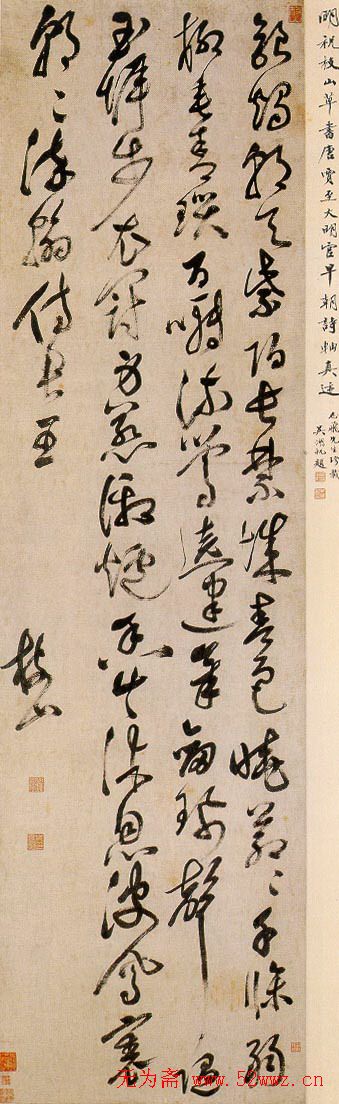 明祝枝山草書唐賈至大明宮早朝詩軸真迹
先生珍藏
吳湖帆題
銀燭朝天紫陌長禁城春色曉蒼〻千條弱
柳垂青瑣百囀流鶯遶建章劍珮聲隨
玉墀步衣冠身惹御爐香共沐恩波鳳裏
朝〻染翰侍君王
枝山
无为斋 www.52wwz.cn